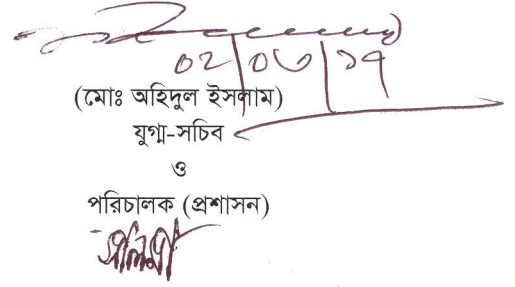 ০২/০৬/১৭
(মোঃ অহিদুল ইসলাম)
যুগ্ম-সচিব
ও
পরিচালক (প্রশাসন)